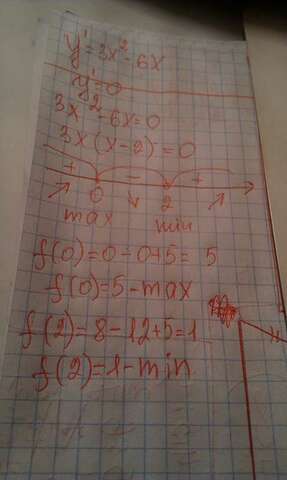 y'=3x²-6x
y'=0
3x²-6x=0
3x(x-2)=0
+ - +
0 2
max min
f(0)=0-0+5=5
f(0)=5-max
f(2)=8-12+5=1
f(2)=1-min